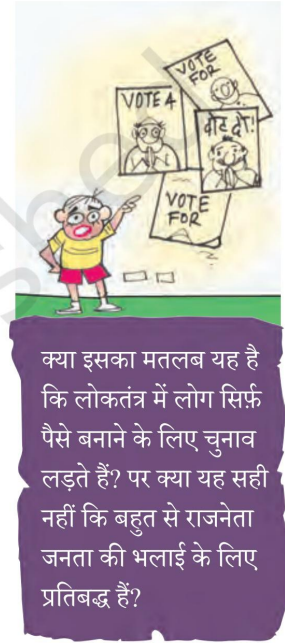 VOTE
FOR
VOTE 4
वोट दो!
VOTE
FOR
क्या इसका मतलब यह है
कि लोकतंत्र में लोग सिर्फ़
पैसे बनाने के लिए चुनाव
लड़ते हैं? पर क्या यह सही
नहीं कि बहुत से राजनेता
जनता की भलाई के लिए
प्रतिबद्ध हैं?